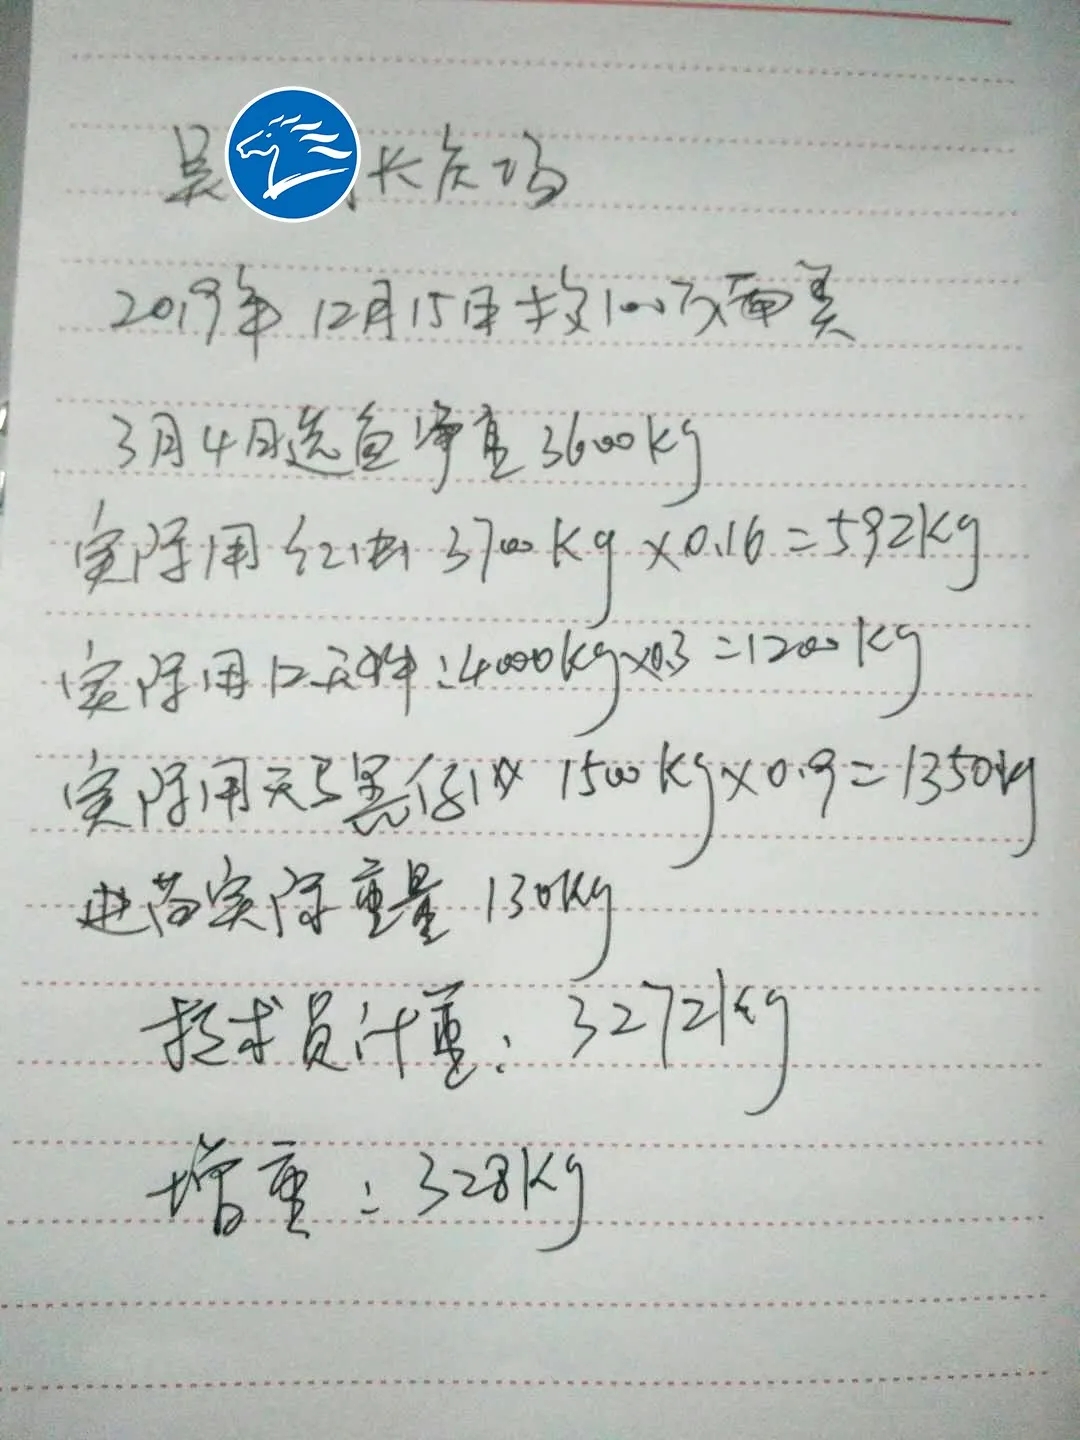 吴 长 鱼场
2019年12月15日放100万面美
3月4日选鱼净重3600kg
实际用红虫 3700kg×0.16=592kg
实际用 :4000kg×0.3=1200kg
实际用天马黑仔 1500kg×0.9=1350kg
进苗实际重量 130kg
技术员计重: 3272kg
增重:328kg